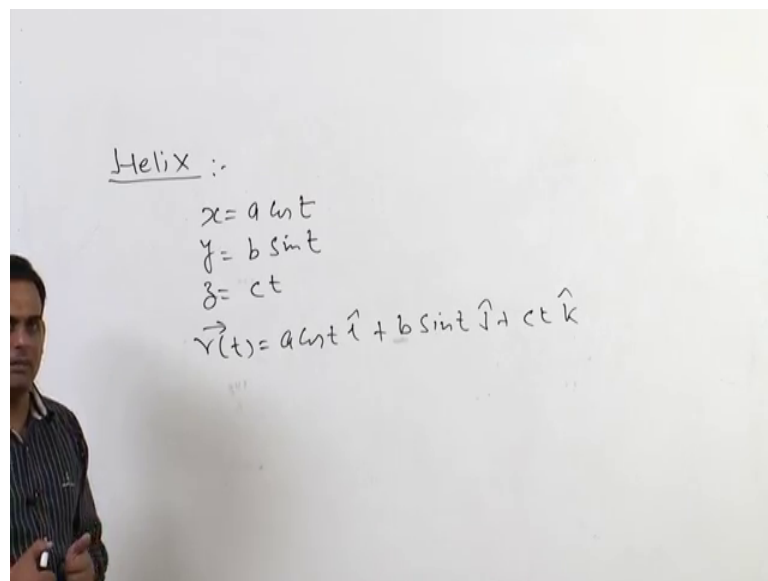 Helix :-
x= a cos t
y= b sin t
z= ct
r⃗(t)= a cos t î + b sin t ĵ + ct k̂